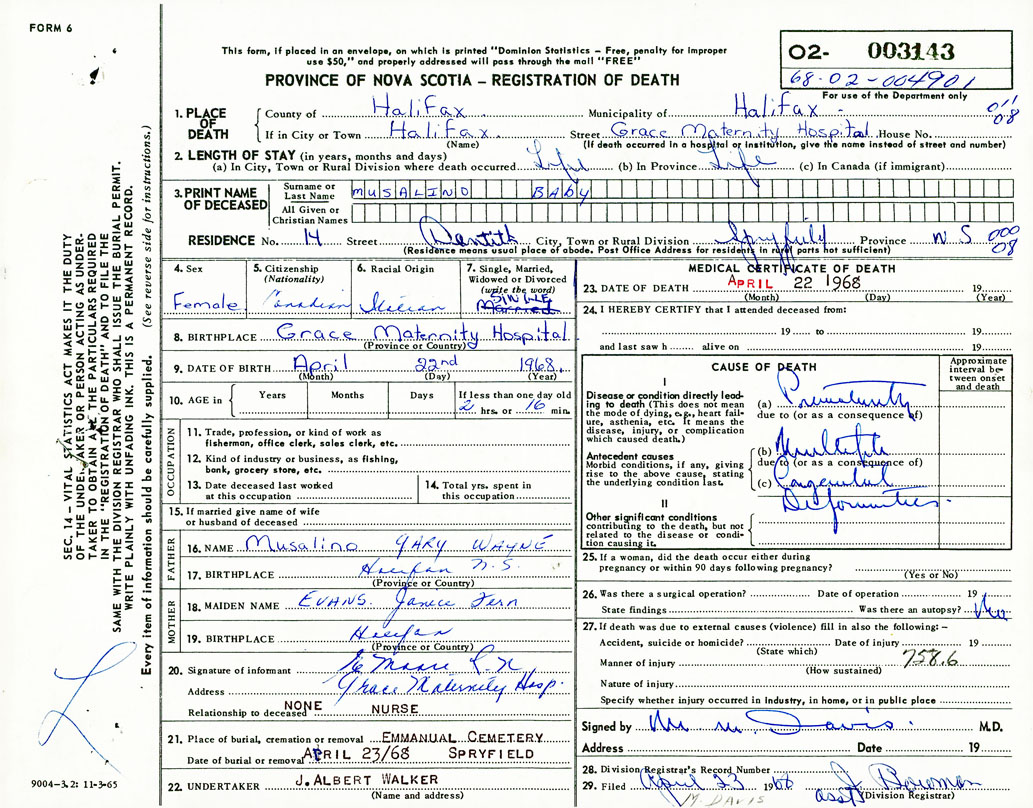 FORM 6
This form, if placed in an envelope, on which is printed "Dominion Statistics – Free, penalty for improper
use $50," and properly addressed will pass through the mail "FREE"
PROVINCE OF NOVA SCOTIA – REGISTRATION OF DEATH
O2- 003143
68-02-004901
For use of the Department only
1. PLACE OF DEATH
County of Halifax Municipality of Halifax 011 08
If in City or Town Halifax Street Grace Maternity Hospital House No.
(Name) (If death occurred in a hospital or institution, give the name instead of street and number)
2. LENGTH OF STAY (in years, months and days)
(a) In City, Town or Rural Division where death occurred Life (b) In Province Life (c) In Canada (if immigrant)
3. PRINT NAME OF DECEASED
Surname or Last Name MUSALINO BABY
All Given or Christian Names
RESIDENCE No. 14 Street Dentith City, Town or Rural Division Spryfield Province N S 000 08
(Residence means usual place of abode. Post Office Address for residents in rural parts not sufficient)
4. Sex
Female
5. Citizenship
(Nationality)
Canadian
6. Racial Origin
7. Single, Married,
Widowed or Divorced
(write the word)
SINGLE
Married
8. BIRTHPLACE Grace Maternity Hospital
(Province or Country)
9. DATE OF BIRTH April 22nd 1968
(Month) (Day) (Year)
10. AGE in Years Months Days If less than one day old
2 hrs. or 16 min.
OCCUPATION
11. Trade, profession, or kind of work as
fisherman, office clerk, sales clerk, etc.
12. Kind of industry or business, as fishing,
bank, grocery store, etc.
13. Date deceased last worked
at this occupation
14. Total yrs. spent in
this occupation
15. If married give name of wife
or husband of deceased
FATHER
16. NAME Musalino GARY WAYNE
17. BIRTHPLACE Halifax N.S.
(Province or Country)
MOTHER
18. MAIDEN NAME EVANS. Janice Fern
19. BIRTHPLACE Halifax
(Province or Country)
20. Signature of informant E Moore R.N.
Address Grace Maternity Hosp.
Relationship to deceased NONE NURSE
21. Place of burial, cremation or removal EMMANUAL CEMETERY
Date of burial or removal APRIL 23/68 SPRYFIELD
22. UNDERTAKER J. ALBERT WALKER
(Name and address)
MEDICAL CERTIFICATE OF DEATH
23. DATE OF DEATH APRIL 22 1968 19
(Month) (Day) (Year)
24. I HEREBY CERTIFY that I attended deceased from:
19 to 19
and last saw h alive on 19
CAUSE OF DEATH
Approximate
interval be-
tween onset
and death
I
Disease or condition directly lead-
ing to death (This does not mean
the mode of dying, e.g., heart fail-
ure, asthenia, etc. It means the
disease, injury, or complication
which caused death.)
(a) Prematurity
due to (or as a consequence of)
Antecedent causes
Morbid conditions, if any, giving
rise to the above cause, stating
the underlying condition last.
(b) Multiple
due to (or as a consequence of)
(c) Congenital
Deformities
II
Other significant conditions
contributing to the death, but not
related to the disease or condi-
tion causing it.
25. If a woman, did the death occur either during
pregnancy or within 90 days following pregnancy?
(Yes or No)
26. Was there a surgical operation? Date of operation 19
State findings Was there an autopsy?
27. If death was due to external causes (violence) fill in also the following: –
Accident, suicide or homicide? Date of injury 19
(State which)
Manner of injury 758.6
(How sustained)
Nature of injury
Specify whether injury occurred in industry, in home, or in public place
Signed by M M Davis M.D.
Address Date 19
28. Division Registrar's Record Number
29. Filed April 23 1968 J. Bowman
M. DAVIS asst (Division Registrar)
SEC. 14 – VITAL STATISTICS ACT MAKES IT THE DUTY
OF THE UNDERTAKER OR PERSON ACTING AS UNDER-
TAKER TO OBTAIN ALL THE PARTICULARS REQUIRED
IN THE "REGISTRATION OF DEATH" AND TO FILE THE
SAME WITH THE DIVISION REGISTRAR WHO SHALL ISSUE THE BURIAL PERMIT.
WRITE PLAINLY WITH UNFADING INK. THIS IS A PERMANENT RECORD.
Every item of information should be carefully supplied. (See reverse side for instructions.)
9004-3.2: 11-3-65